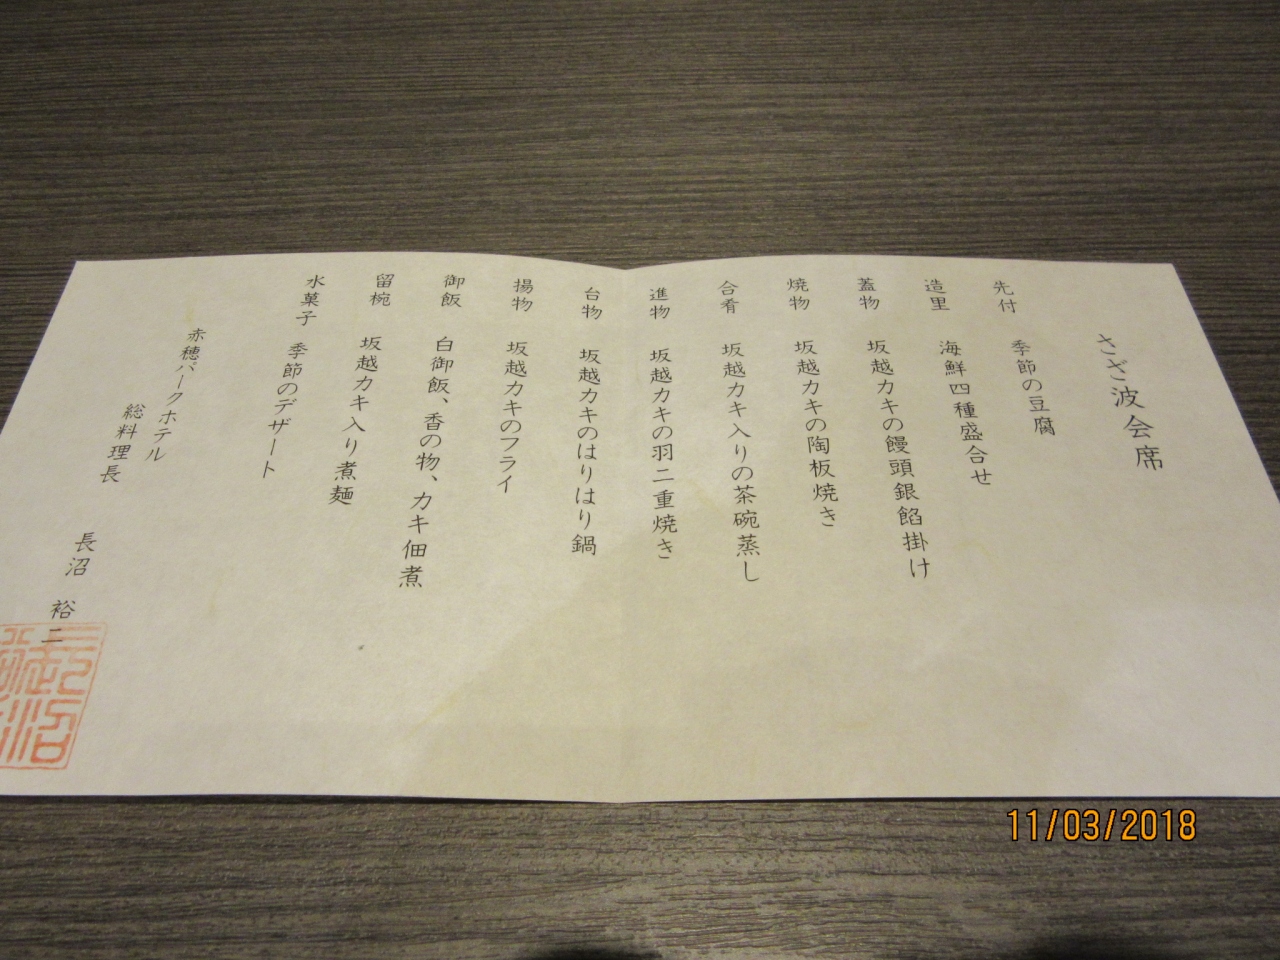 さざ波会席
先付　季節の豆腐
造里　海鮮四種盛合せ
蓋物　坂越カキの饅頭銀餡掛け
焼物　坂越カキの陶板焼き
合肴　坂越カキ入りの茶碗蒸し
進物　坂越カキの羽二重焼き
台物　坂越カキのはりはり鍋
揚物　坂越カキのフライ
御飯　白御飯、香の物、カキ佃煮
留椀　坂越カキ入り煮麺
水菓子　季節のデザート
赤穂パークホテル
総料理長　長沼　裕二
11/03/2018